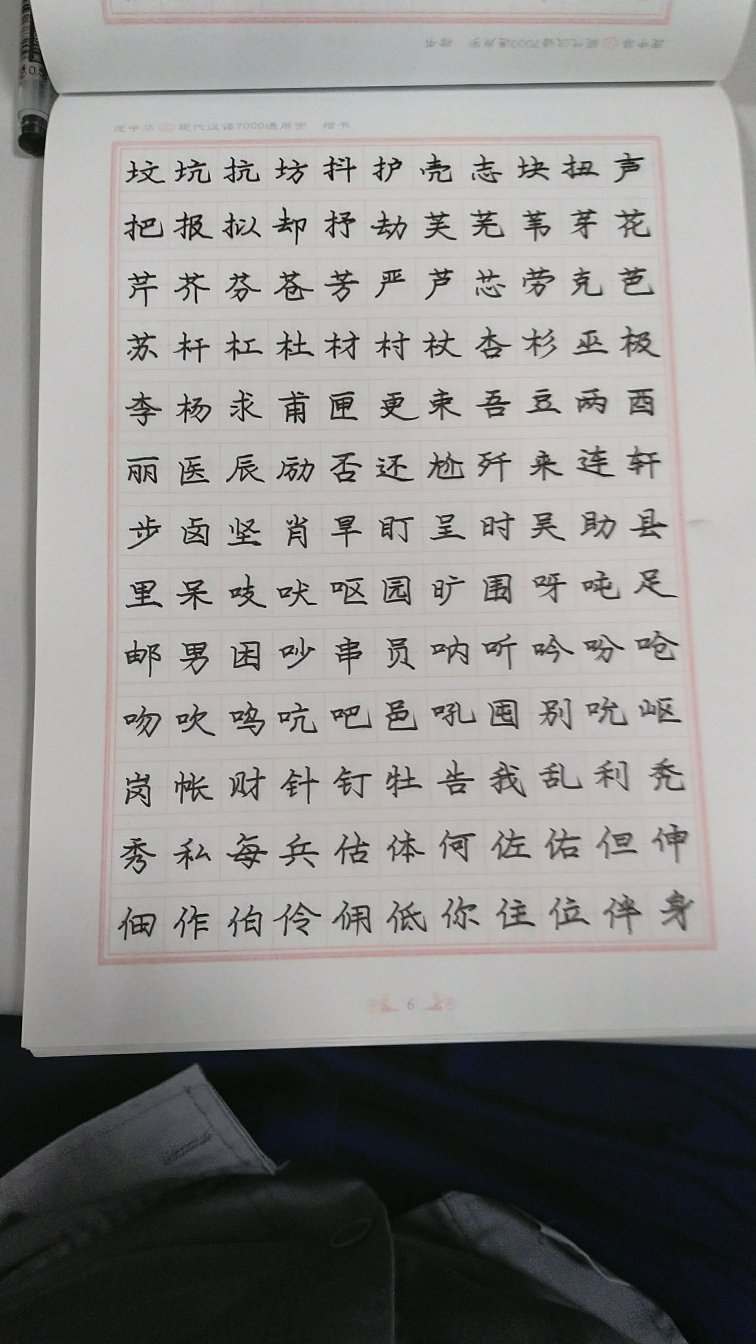 庞中华 现代汉语7000通用字 楷书
庞中华 现代汉语7000通用字 楷书
坟坑抗坊抖护壳志块扭声
把报拟却抒劫芙芜苇芽花
芹芥芬苍芳严芦芯劳克芭
苏杆杠杜材村杖杏杉巫极
李杨求甫匣更束吾豆两酉
丽医辰励否还尬歼来连轩
步卤坚肖旱盯呈时吴助县
里呆吱吠呕园旷围呀吨足
邮男困吵串员呐听吟吩呛
吻吹呜吭吧邑吼囤别吮岖
岗帐财针钉牡告我乱利秃
秀私每兵估体何佐佑但伸
佃作伯伶佣低你住位伴身
6